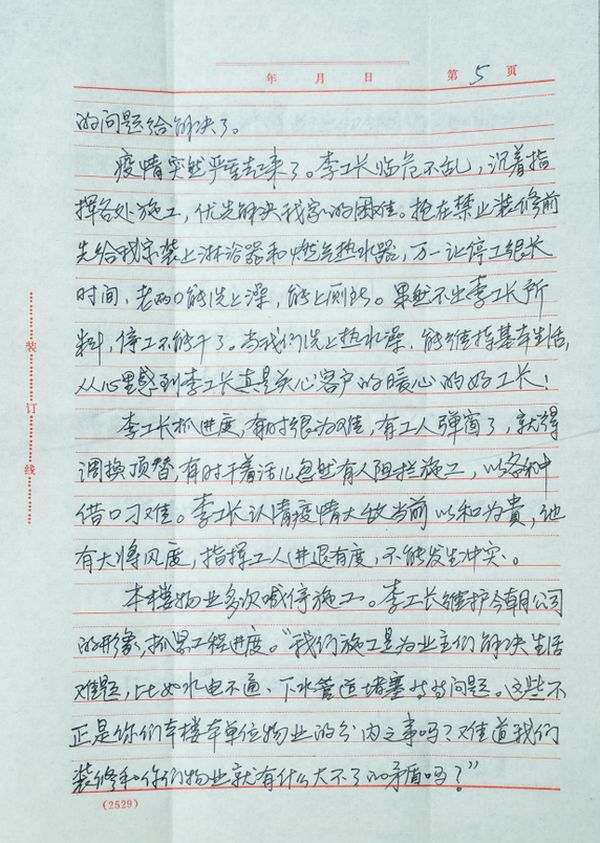 年 月 日 第 5 页
的问题给解决了。
疫情突然严重起来了。李工长临危不乱，沉着指
挥各处施工，优先解决我家的困难。抢在禁止装修前
先给我家装上淋浴器和燃气热水器，万一让停工很长
时间，老两口能洗上澡，能上厕所。果然不出李工长所
料，停工不能干了。当我们洗上热水澡，能维持基本生活，
从心里感到李工长真是关心客户的暖心的好工长！
李工长抓进度，有时很为难，有工人弹窗了，就得
调换顶替，有时干着活儿忽然有人阻拦施工，以各种
借口刁难。李工长认清疫情大敌当前以和为贵，他
有大将风度，指挥工人进退有度，不能发生冲突。
本楼物业多次喊停施工。李工长维护今朝公司
的形象，抓紧工程进度。“我们施工是为业主们解决生活
难题，比如水电不通、下水管道堵塞等等问题。这些不
正是你们本楼本单位物业的分内之事吗？难道我们
装修和你们物业就有什么大不了的矛盾吗？”
装 订 线
(2529)